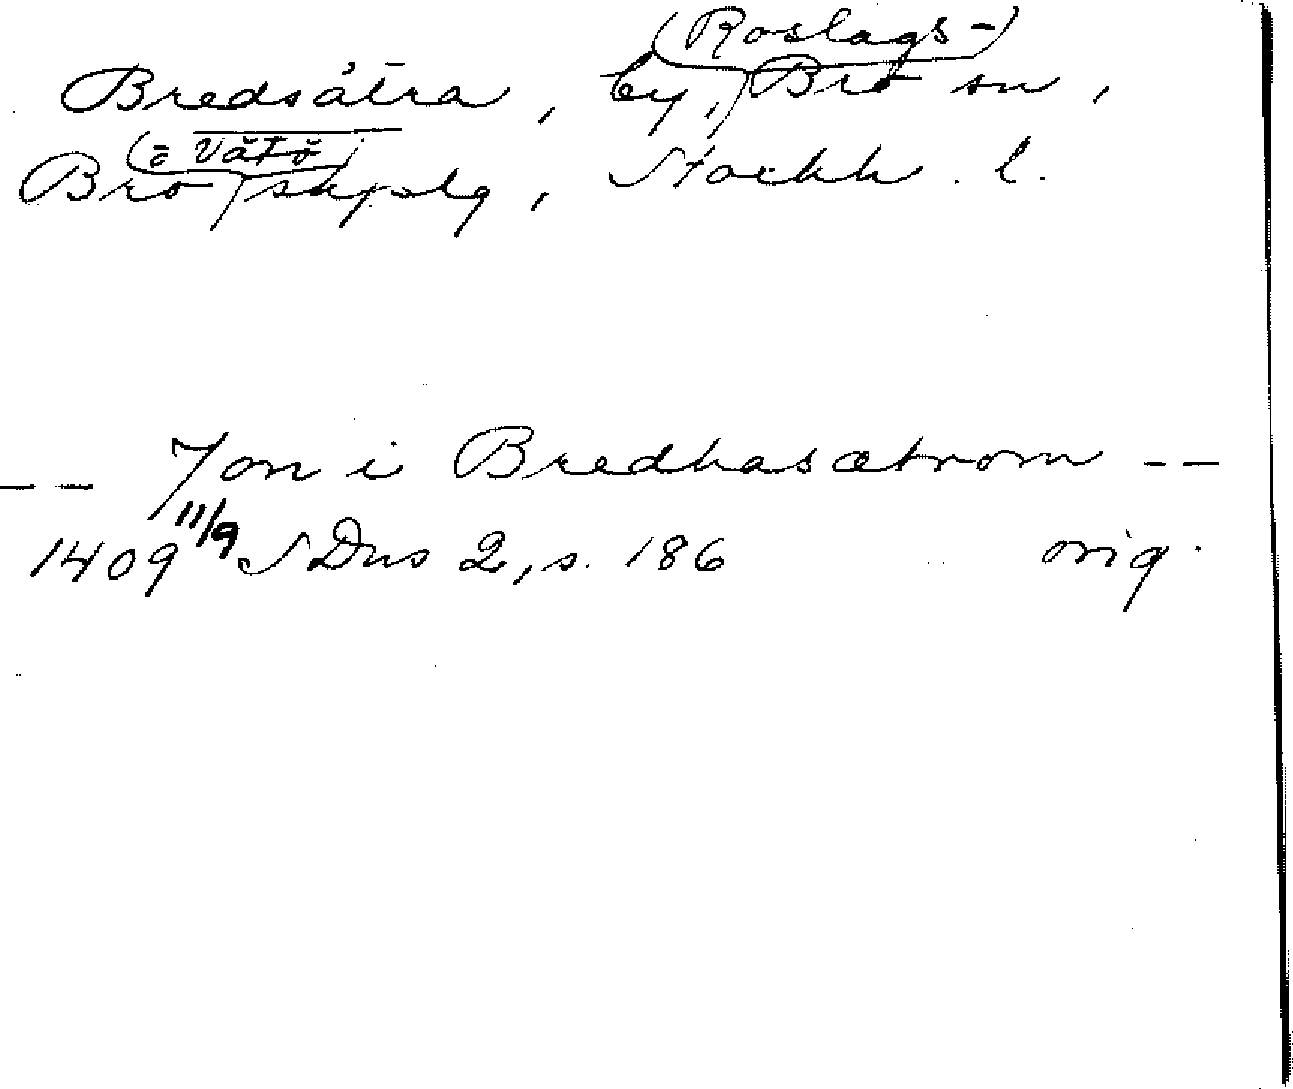 (Roslags-)
Bredsätra, by, Bro sn,
(o Vätö)
Bro skpslg, Stockh. l.
-- Jon i Bredhasætrom --
1409 11/9 SDns 2, s. 186 orig.